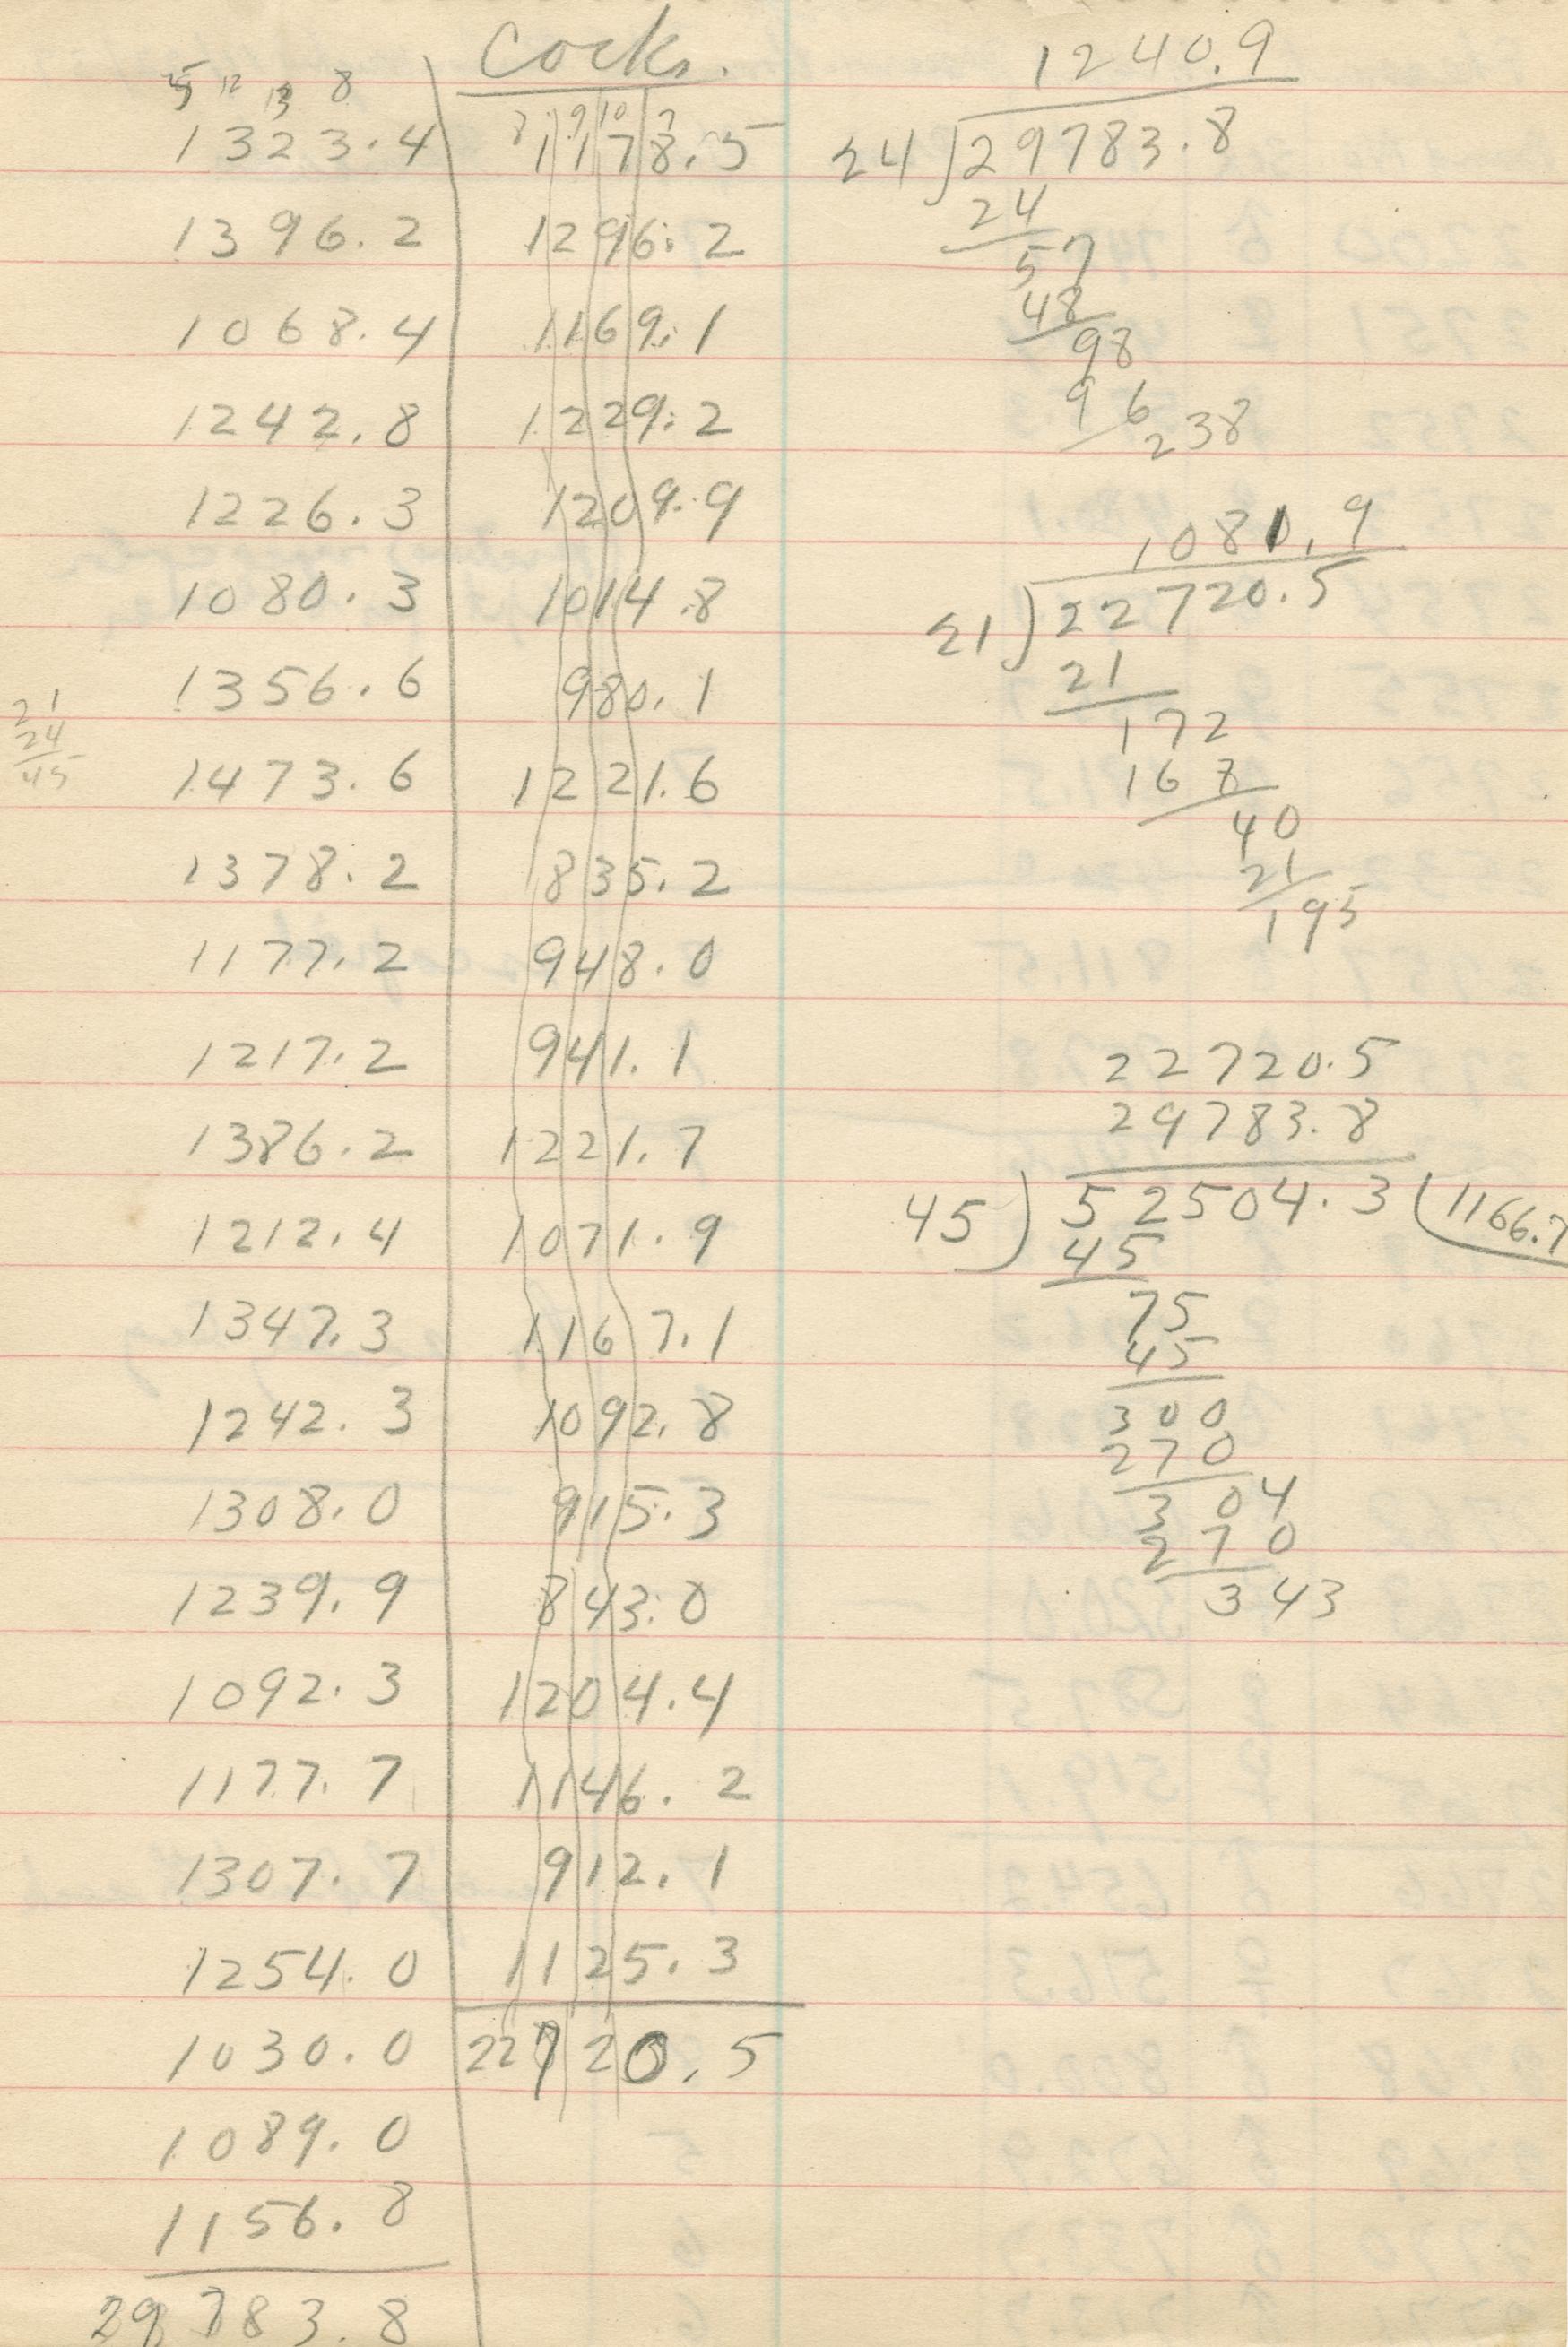 Cocks.
5 12 13 8
3 9 10 7
1323.4 1178.5
1396.2 1296.2
1068.4 1169.1
1242.8 1229.2
1226.3 1209.9
1080.3 1014.8
1356.6 980.1
1473.6 1221.6
1378.2 835.2
1177.2 948.0
1217.2 941.1
1386.2 1221.7
1212.4 1071.9
1347.3 1167.1
1242.3 1092.8
1308.0 915.3
1239.9 843.0
1092.3 1204.4
1177.7 1146.2
1307.7 912.1
1254.0 1125.3
1030.0 22720.5
1089.0
1156.8
29783.8
21
24
45
1240.9
24 29783.8
24
57
48
98
96
238
1081.9
21 22720.5
21
172
168
40
21
195
22720.5
29783.8
45 52504.3 1166.7
45
75
45
300
270
304
270
343